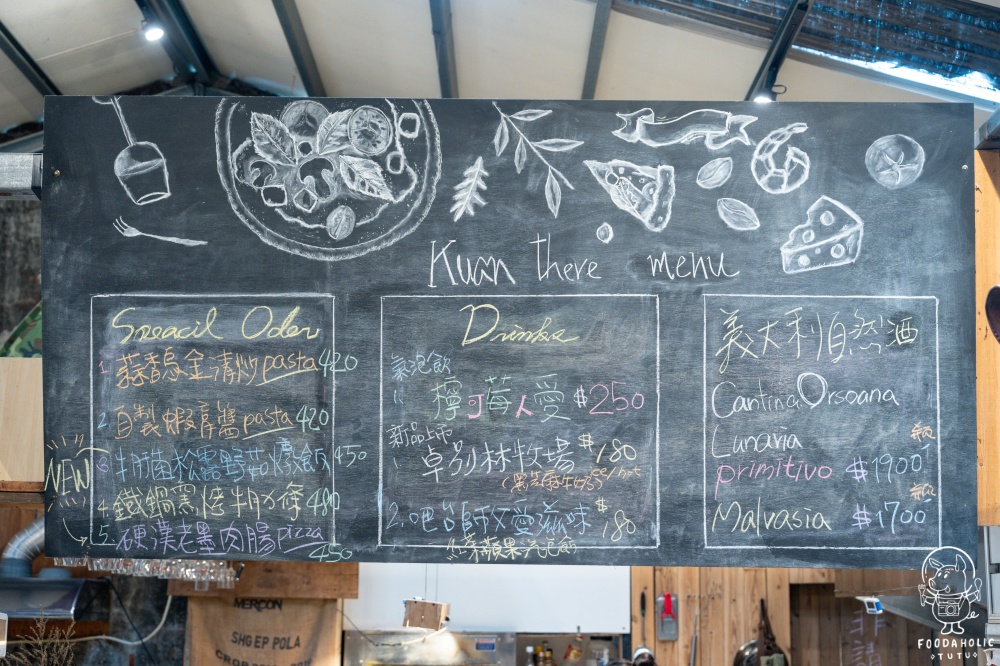 Kuan there menu
Sneacil Oder
1. 蒜香烏金清炒pasta 420
2. 自製蝦膏醬pasta 420
3. 牛肝菌松露野菇燉飯 450
NEW
4. 鐵鍋窯烤牛肋條 480
5. 硬漢老墨肉腸pizza
450
Drinks
氣泡飲
檸可莓人愛 $250
新品上市
卓別林牧場 $180
2. 吧台師父愛滋味 $180
紅茶蘋果汽泡飲
義大利自然酒
Cantina Orsoana
Lunaria
primitivo $1900
Malvasia $1700
MERCON
SHG EP POLA
FOODAHOLIC
TUTU